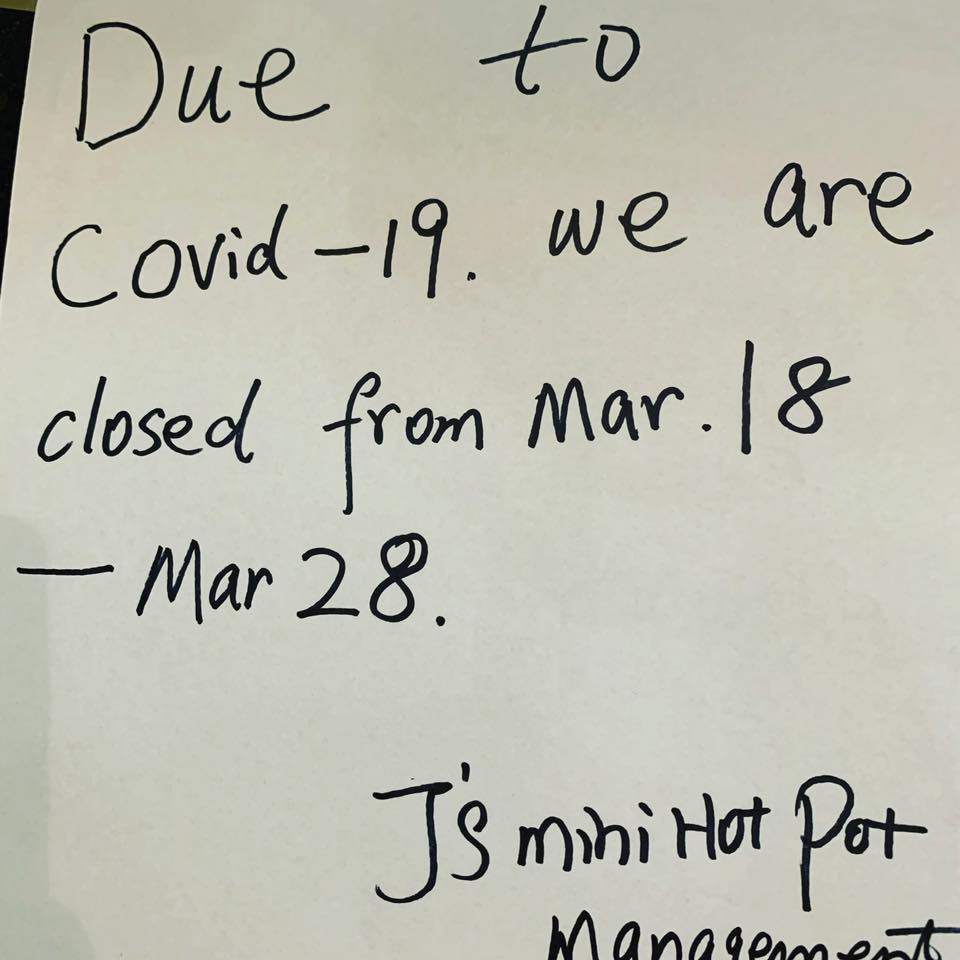 Due to
Covid-19. we are
closed from Mar. 18
— Mar 28.
J's mini Hot Pot
Management